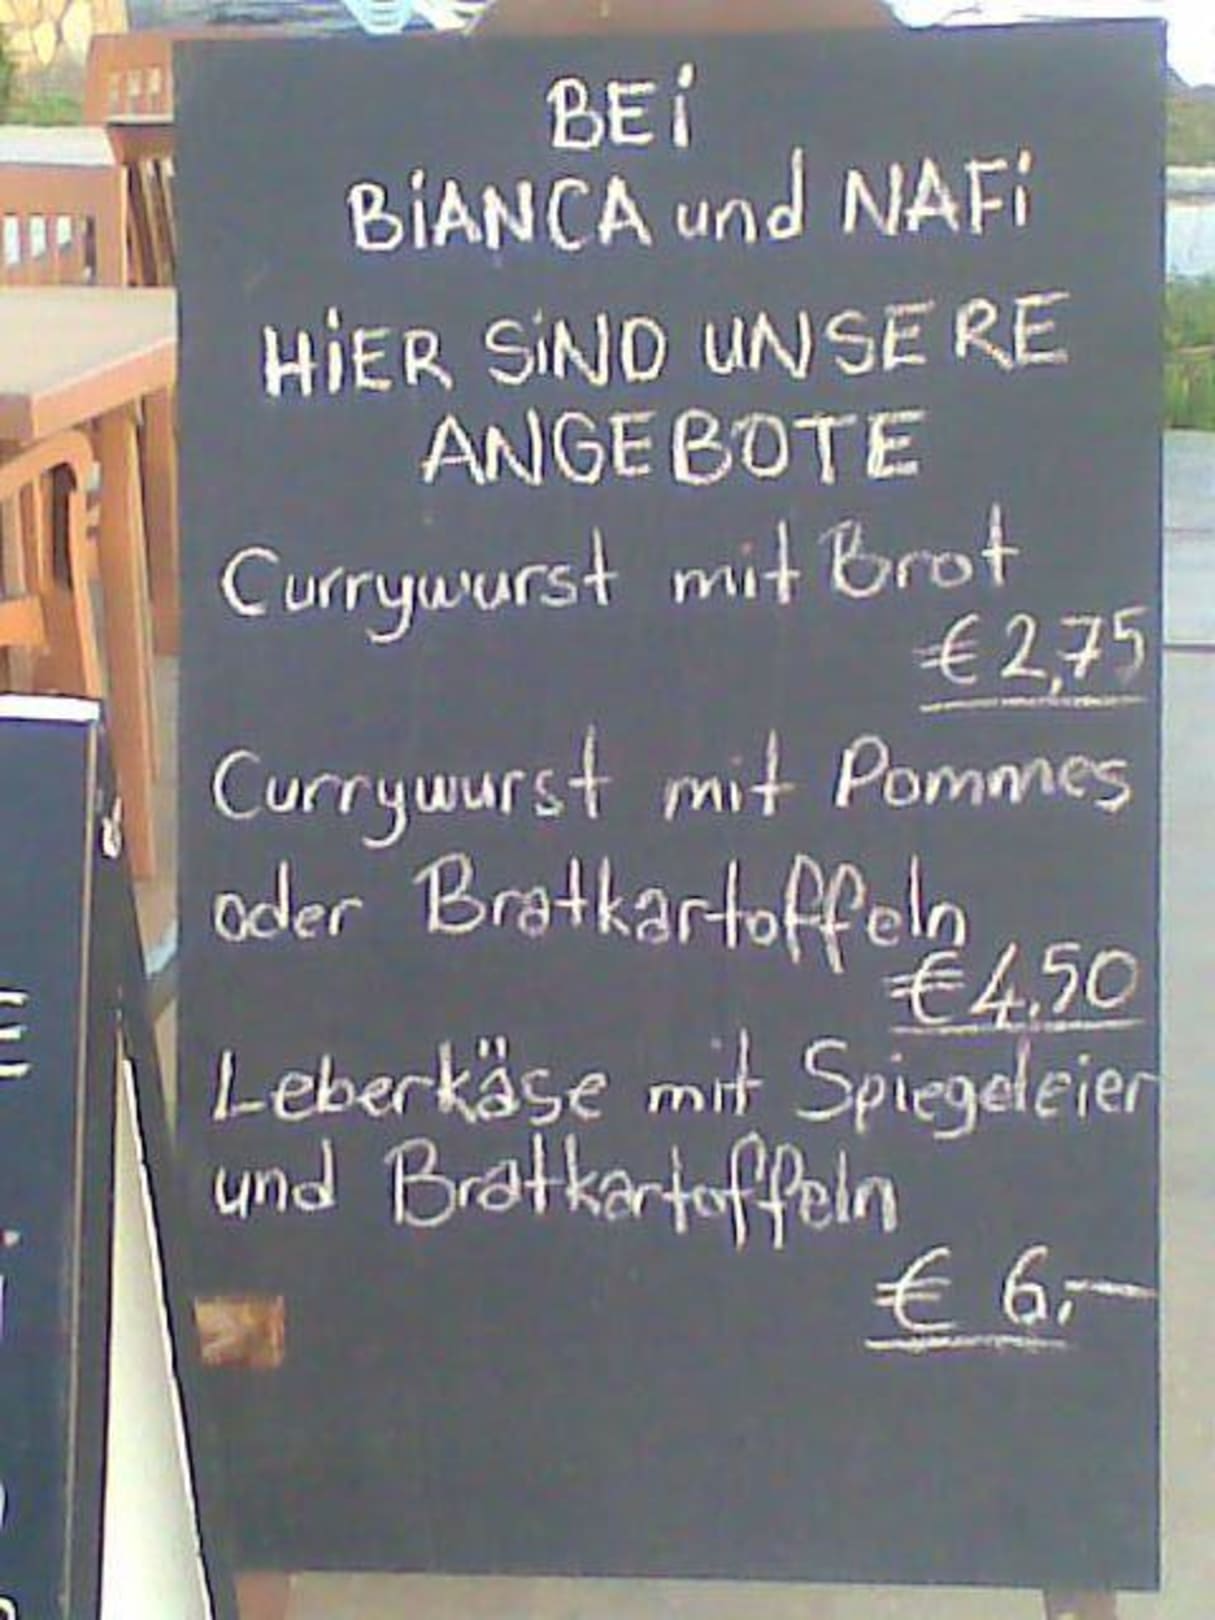 BEi
BiANCA und NAFi
HiER SiND UNSERE
ANGEBOTE
Currywurst mit Brot
€ 2,75
Currywurst mit Pommes
oder Bratkartoffeln
€ 4,50
Leberkäse mit Spiegeleier
und Bratkartoffeln
€ 6,-